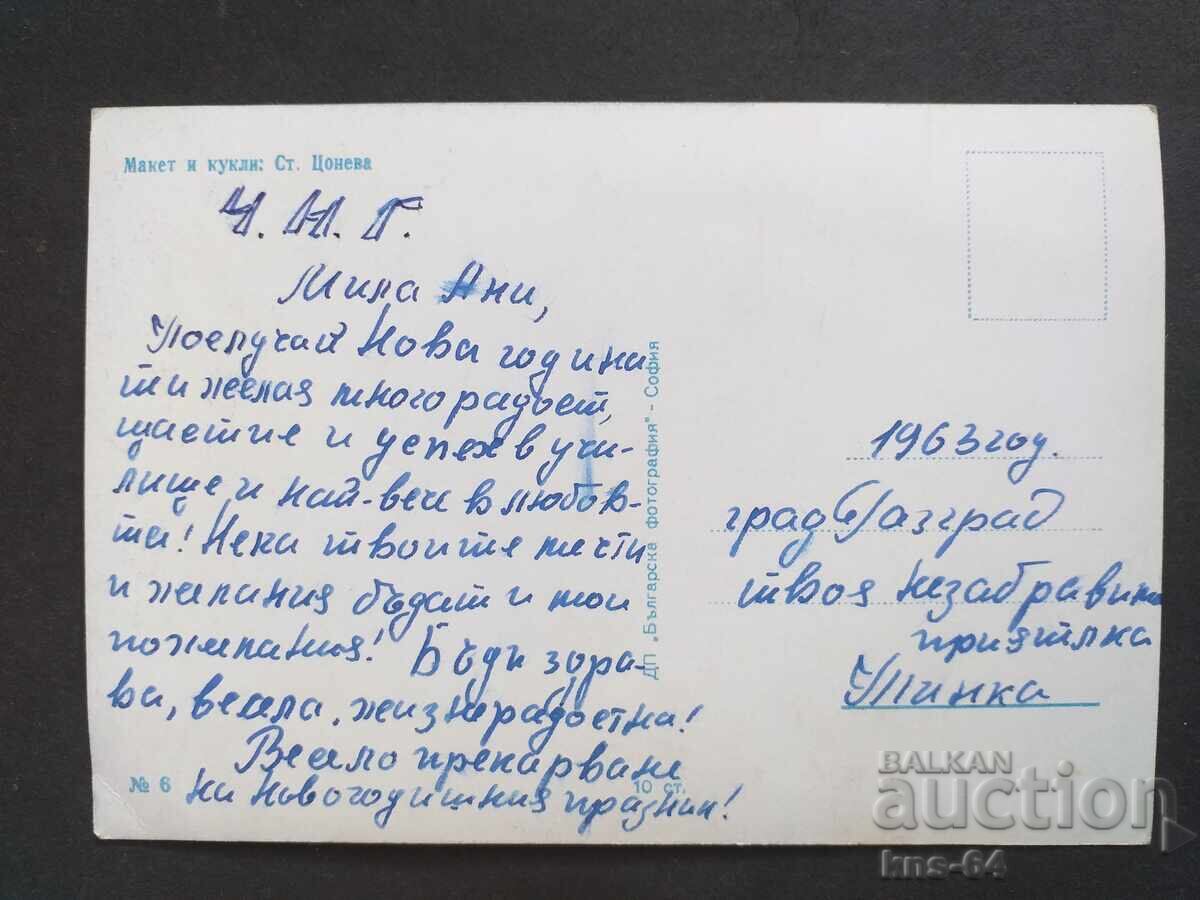 Макет и кукли: Ст. Цонева
Ч. Н. Г.
Мила Ани,
По случай Нова година
ти желая много радост,
щастие и успех в учи-
лище и най-вече в любов-
та! Нека твоите мечти
и желания бъдат и мои
пожелания! Бъди здра-
ва, весела, жизнерадостна!
Весело прекарване
на новогодишния празник!
№ 6
10 ст.
ДП „Българска фотография" - София
1963 год.
град Разград
твоя незабравима
приятелка
BALKAN
auction
kns-64